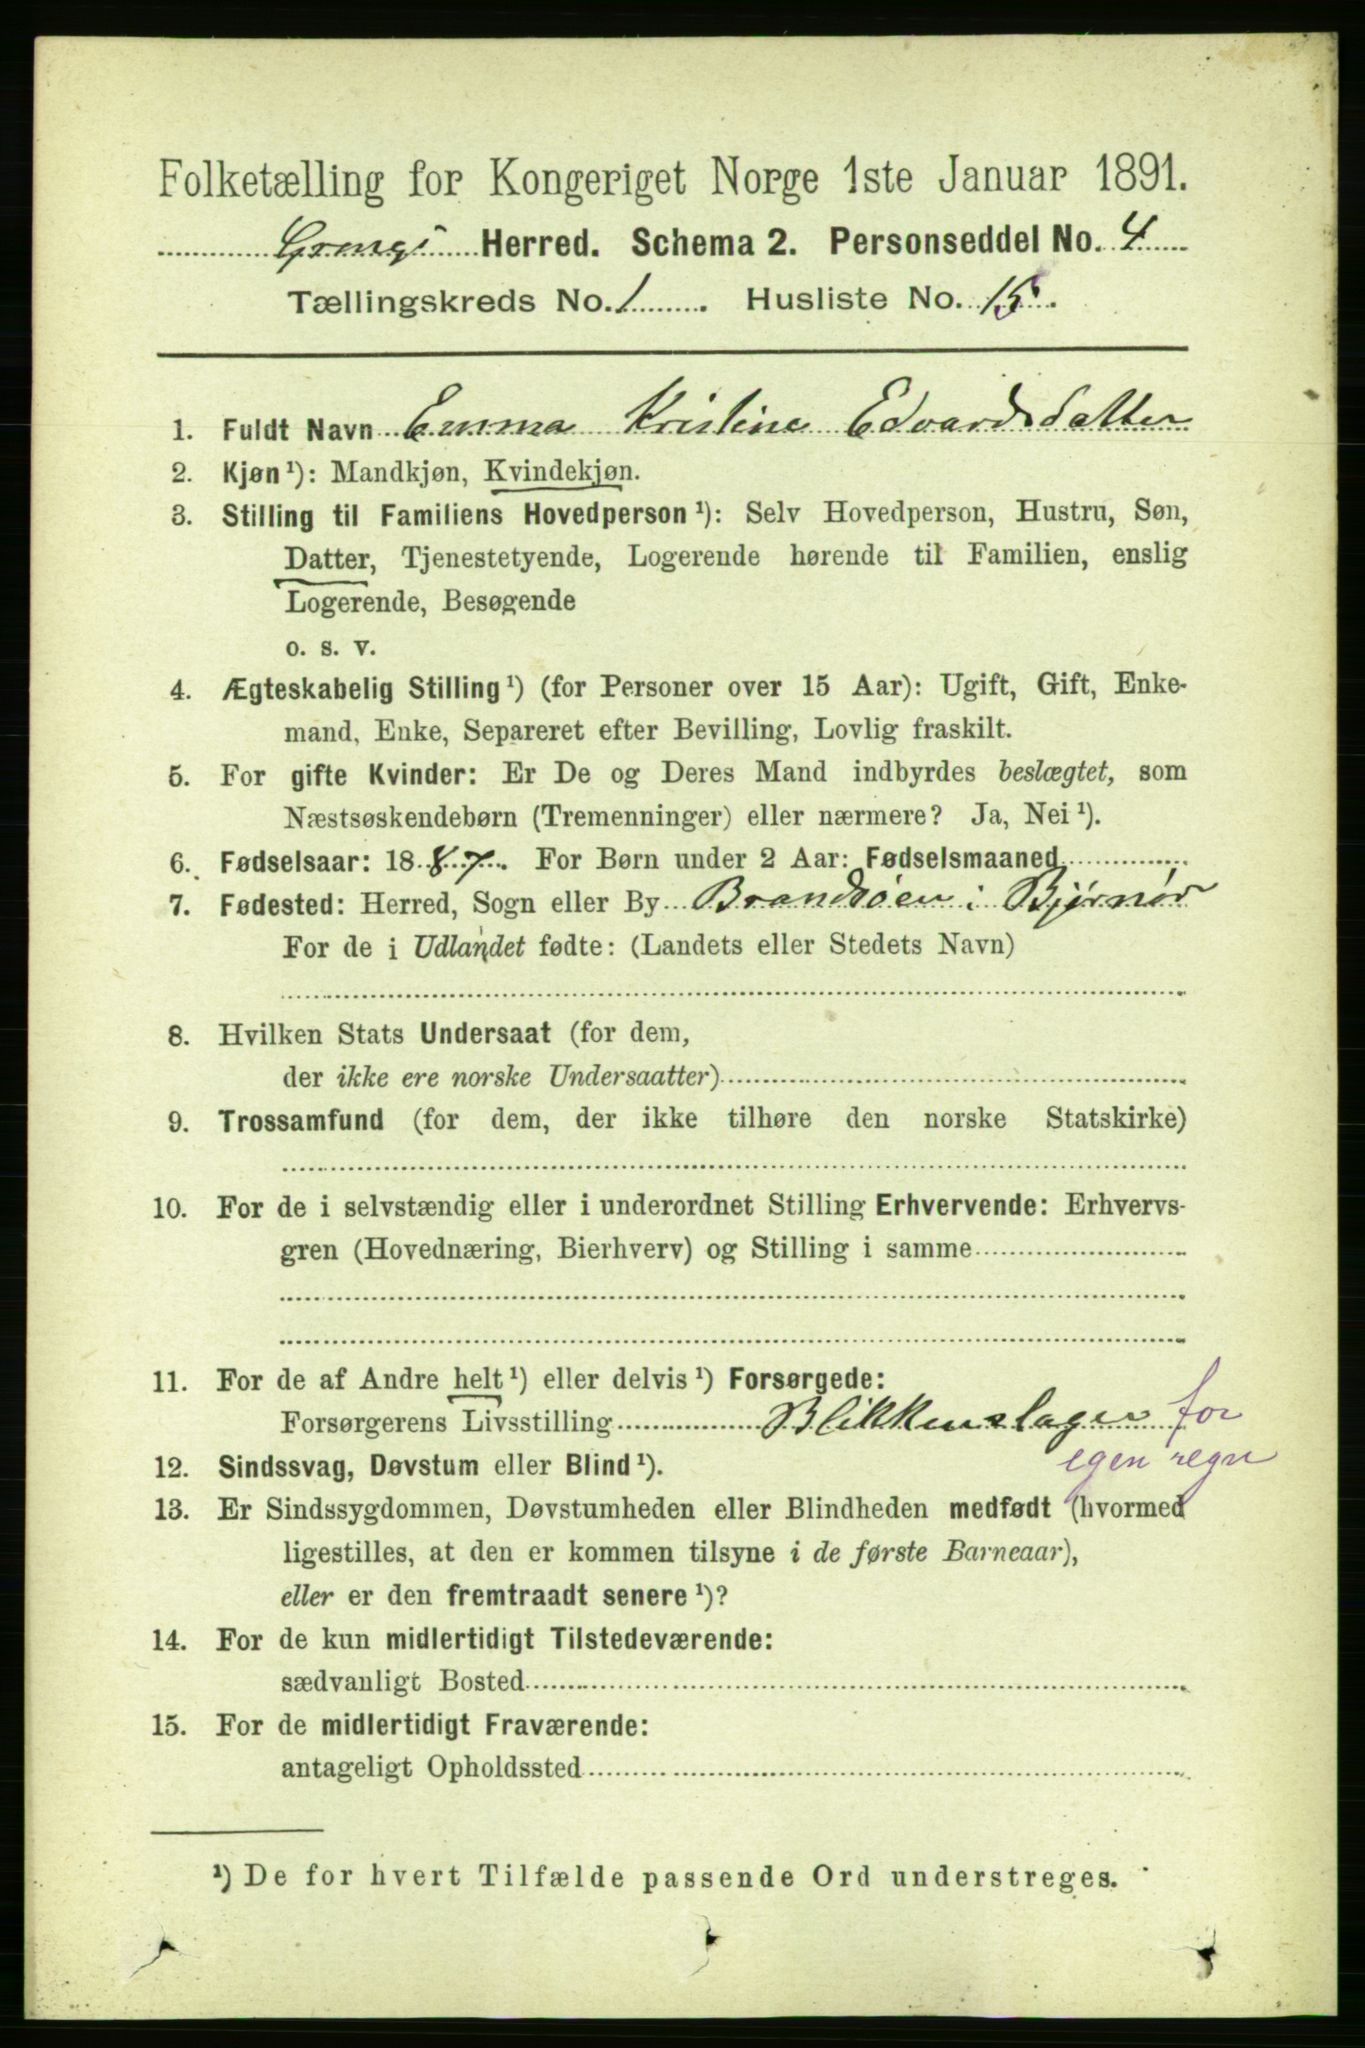 Folketælling for Kongeriget Norge 1ste Januar 1891.
Herred. Schema 2. Personseddel No. 4
Tællingskreds No. 1. Husliste No. 15.
1. Fuldt Navn Emma Kristine Edvardsdatter
2. Kjøn ¹): Mandkjøn, Kvindekjøn.
3. Stilling til Familiens Hovedperson ¹): Selv Hovedperson, Hustru, Søn,
Datter, Tjenestetyende, Logerende hørende til Familien, enslig
Logerende, Besøgende
o. s. v.
4. Ægteskabelig Stilling ¹) (for Personer over 15 Aar): Ugift, Gift, Enke-
mand, Enke, Separeret efter Bevilling, Lovlig fraskilt.
5. For gifte Kvinder: Er De og Deres Mand indbyrdes beslægtet, som
Næstsøskendebørn (Tremenninger) eller nærmere? Ja, Nei ¹).
6. Fødselsaar: 1887. For Børn under 2 Aar: Fødselsmaaned
7. Fødested: Herred, Sogn eller By Brandsøen i Bjørnør
For de i Udlandet fødte: (Landets eller Stedets Navn)
8. Hvilken Stats Undersaat (for dem,
der ikke ere norske Undersaatter)
9. Trossamfund (for dem, der ikke tilhøre den norske Statskirke)
10. For de i selvstændig eller i underordnet Stilling Erhvervende: Erhvervs-
gren (Hovednæring, Bierhverv) og Stilling i samme
11. For de af Andre helt ¹) eller delvis ¹) Forsørgede:
Forsørgerens Livsstilling Blikkenslager for
egen regn
12. Sindssvag, Døvstum eller Blind ¹).
13. Er Sindssygdommen, Døvstumheden eller Blindheden medfødt (hvormed
ligestilles, at den er kommen tilsyne i de første Barneaar),
eller er den fremtraadt senere ¹)?
14. For de kun midlertidigt Tilstedeværende:
sædvanligt Bosted
15. For de midlertidigt Fraværende:
antageligt Opholdssted
¹) De for hvert Tilfælde passende Ord understreges.